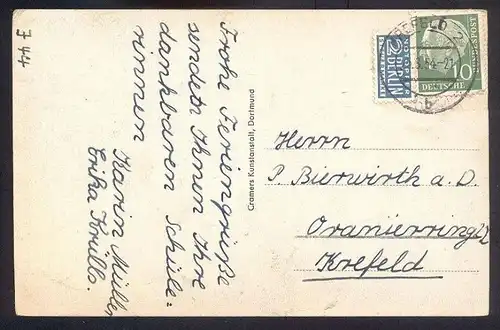 7 44
Frohe Feriengrüße
sendet Ihnen Ihre
dankbaren Schüle=
rinnen
Karin Müller
Erika Krülls.
Cramers Kunstanstalt, Dortmund
NOTOPFER
2 BERLIN
STEUERMARKE
DEUTSCHE
POST
10
KREFELD 2
b
Herrn
P Bierwirth a. D.
Oranierring
Krefeld